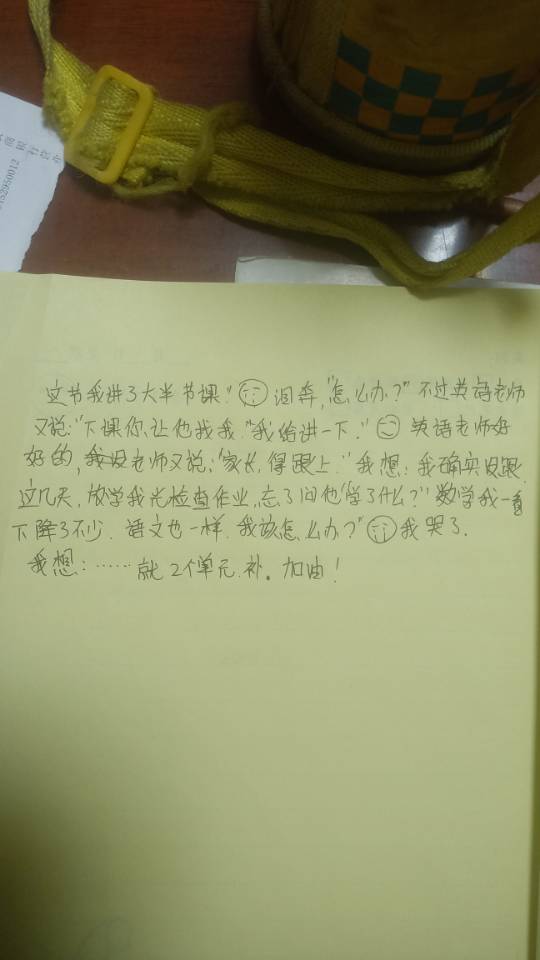 商银行营业
152950012
这节我讲了大半节课."泪奔,"怎么办?"不过英语老师
又说:"下课你让他找我."我给讲一下."英语老师好
好的,老师又说:"家长,得跟上."我想:我确实没跟.
这几天,放学我光检查作业,忘了问他"学了什么?"数学我一看
下降了不少.语文也一样.我该怎么办?"我哭了.
我想:……就2个单元.补。加油!